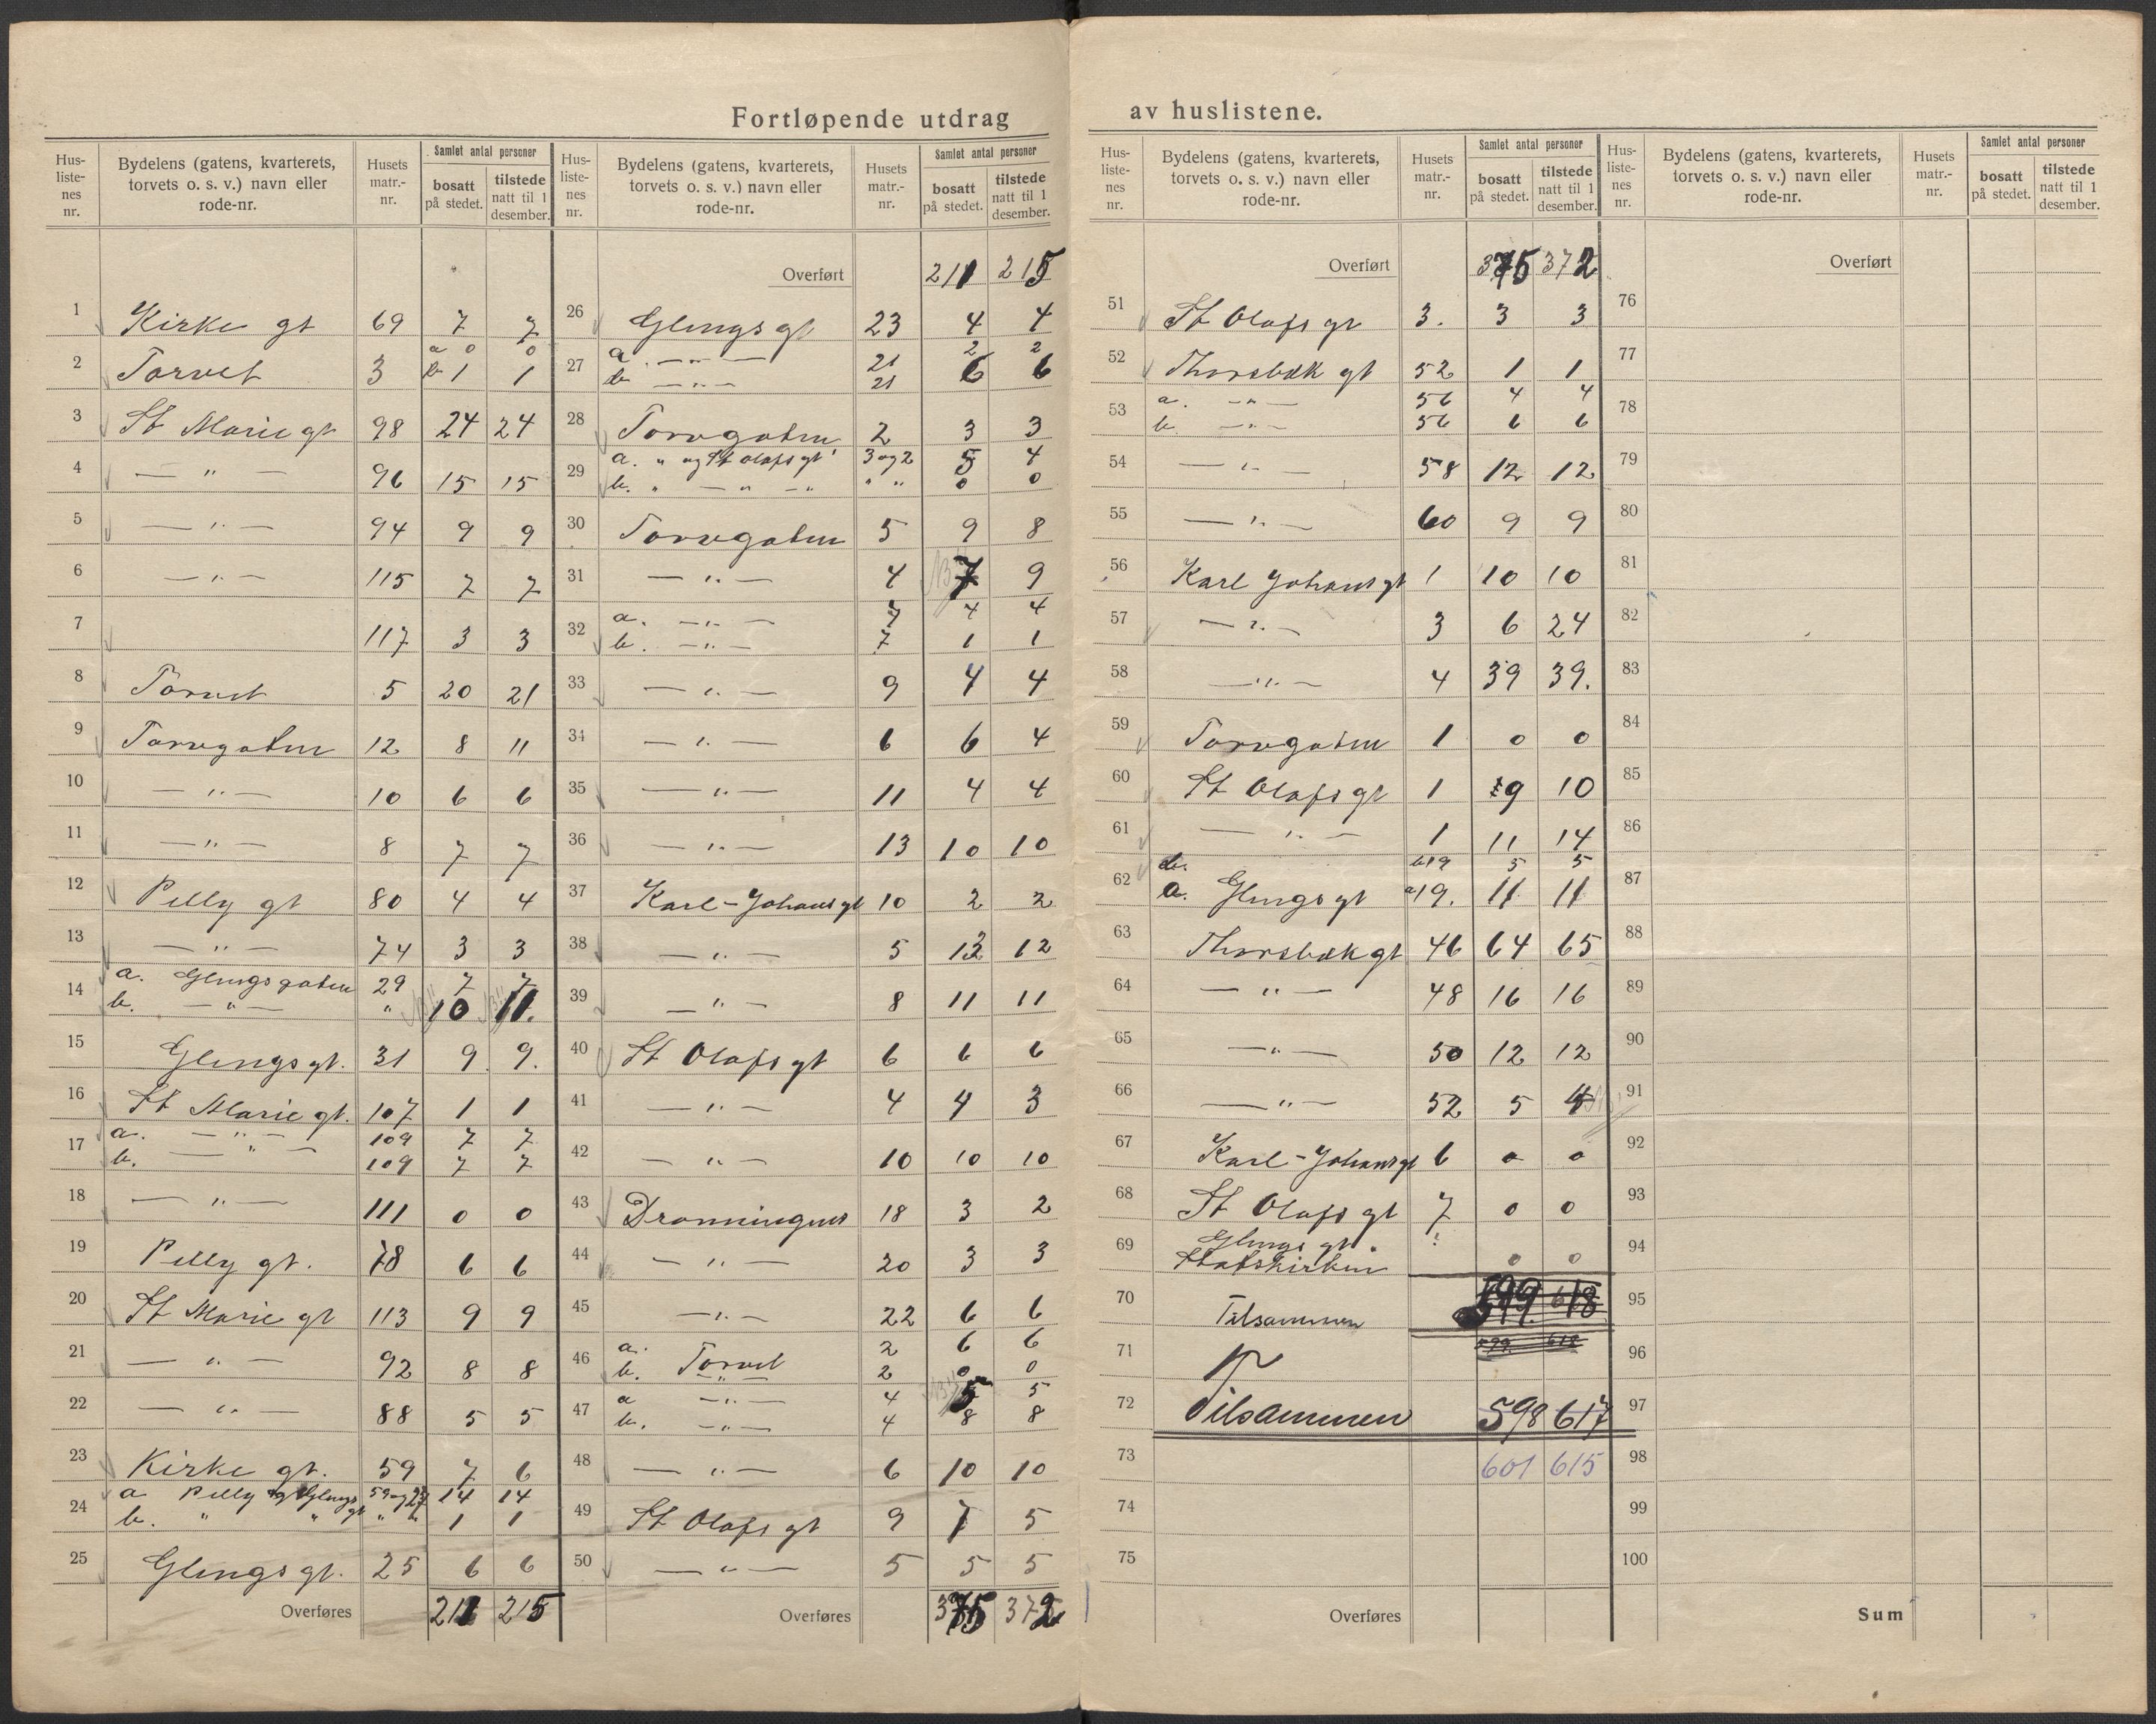 Fortløpende utdrag av huslistene.
Hus-liste-nes nr. Bydelens (gatens, kvarterets, torvets o. s. v.) navn eller rode-nr. Husets matr.-nr. Samlet antal personer bosatt på stedet. tilstede natt til 1 desember.
1 Kirke gt 69 7 7
2 Torvet 3 a 0 0
b 1 1
3 St Marie gt 98 24 24
4 — " — 96 15 15
5 — " — 94 9 9
6 — " — 115 7 7
7 117 3 3
8 Torvet 5 20 21
9 Torvgaten 12 8 11
10 — " — 10 6 6
11 — " — 8 7 7
12 Pelly gt 80 4 4
13 — " — 74 3 3
14 a. Glengsgaten 29 7 7
b. — " — " 10 11.
15 Glengsgt. 31 9 9.
16 St Marie gt. 107 1 1
17 a. — " — 109 7 7
b. — " — 109 7 7
18 — " — 111 0 0
19 Pelly gt. 78 6 6
20 St Marie gt 113 9 9
21 — " — 92 8 8
22 — " — 88 5 5
23 Kirke gt. 59 7 6
24 a Pelly og Glengs gt 59 og 27 14 14
b. " " " " 1 1
25 Glengs gt. 25 6 6
Overføres 211 215
Hus-liste-nes nr. Bydelens (gatens, kvarterets, torvets o. s. v.) navn eller rode-nr. Husets matr.-nr. Samlet antal personer bosatt på stedet. tilstede natt til 1 desember.
Overført 211 215
26 Glengsgt 23 4 4
27 a. — " — 21 2 2
b — " — 21 6 6
28 Torvgaten 2 3 3
29 a. " og St Olafs gt 3 og 2 5 4
b. " — " — " " " 0 0
30 Torvgaten 5 9 8
31 — " — 4 7 9
32 a. — " — 7 4 4
b. — " — 7 1 1
33 — " — 9 4 4
34 — " — 6 6 4
35 — " — 11 4 4
36 — " — 13 10 10
37 Karl-Johans gt 10 2 2
38 — " — 5 12 12
39 — " — 8 11 11
40 St Olafs gt 6 6 6
41 — " — 4 4 3
42 — " — 10 10 10
43 Dronningens 18 3 2
44 — " — 20 3 3
45 — " — 22 6 6
46 a. 2 6 6
b. Torvet 2 0 0
47 a — " — 4 5 5
b. — " — 4 8 8
48 — " — 6 10 10
49 St Olafs gt 9 7 5
50 — " — 5 5 5
Overføres 375 372
Hus-liste-nes nr. Bydelens (gatens, kvarterets, torvets o. s. v.) navn eller rode-nr. Husets matr.-nr. Samlet antal personer bosatt på stedet. tilstede natt til 1 desember.
Overført 375 372
51 St Olafs gt 3. 3 3
52 Thorsbæk gt 52 1 1
53 a. — " — 56 4 4
b. — " — 56 6 6
54 — " — 58 12 12
55 — " — 60 9 9
56 Karl Johans gt 1 10 10
57 — " — 3 6 24
58 — " — 4 39 39.
59 Torvgaten 1 0 0
60 St Olafs gt 1 9 10
61 — " — 1 11 14
62 b. b19 5 5
a. Glengs gt a19. 11 11
63 Thorsbæk gt 46 64 65
64 — " — 48 16 16
65 — " — 50 12 12
66 — " — 52 5 4
67 Karl-Johans gt 6 0 0
68 St Olafs gt 7 0 0
69 Glengs gt.
Stabskirken 0 0
70 Tilsammen 599 618
71 599 618
72 Tilsammen 598 617
73 601 615
74
75
Overføres
Hus-liste-nes nr. Bydelens (gatens, kvarterets, torvets o. s. v.) navn eller rode-nr. Husets matr.-nr. Samlet antal personer bosatt på stedet. tilstede natt til 1 desember.
Overført
76
77
78
79
80
81
82
83
84
85
86
87
88
89
90
91
92
93
94
95
96
97
98
99
100
Sum